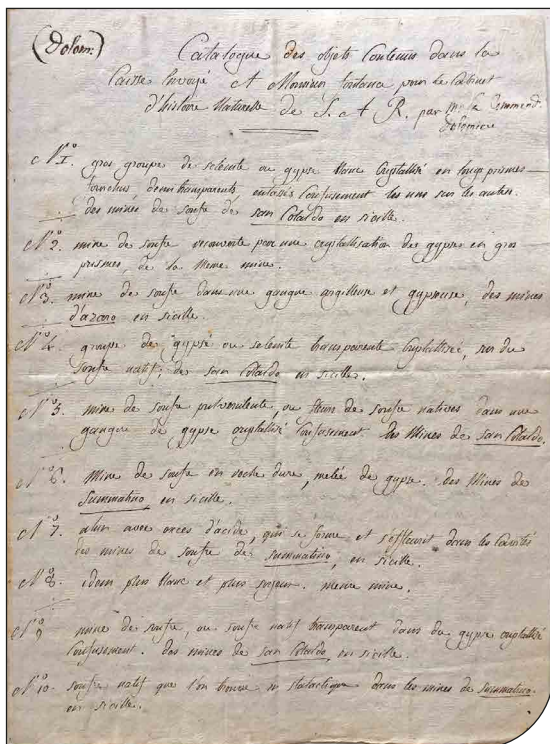 (Dolom.)
Catalogue des objets Contenus dans la
Caisse Envoyé A Monsieur fontana pour le Cabinet
d'histoire Naturelle de S. A R. par mr le Command.
Dolomieu
N.º 1. gros groupe de selenite ou gypse blanc Crystallisé en longs prismes
demi transparents, entassés Confusement les uns sur les autres.
des mines de soufre de san Cataldo en sicille.
N.º 2. mine de soufre recouverte par une crystallisation de gypse en gros
prismes, de la meme mine.
N.º 3. mine de soufre dans une gangue argilleuse et gypseuse, des mines
d'azaro en sicille.
N.º 4. groupe de gypse ou selenite transparente Crystallisée, sur du
soufre natif, de san Cataldo en sicille.
N.º 5. mine de soufre pulverulente, ou fleurs de soufre natives dans une
gangue de gypse crystallisé Confusement des Mines de san Cataldo.
N.º 6. Mine de soufre en roche dure, melée de gypse. Des Mines de
Summatino en sicille.
N.º 7. alun avec exces d'acide, qui se forme et s'effleurit dans les Cavités
des mines de soufre de Summatino, en sicille.
N.º 8. idem plus blanc et plus meme mine.
N.º 9 mine de soufre, ou soufre natif transparent dans du gypse crystallisé
Confusement. des mines de san Cataldo en sicille.
N.º 10. soufre natif que l'on trouve en stalactique dans les mines de Summatino
en sicille.